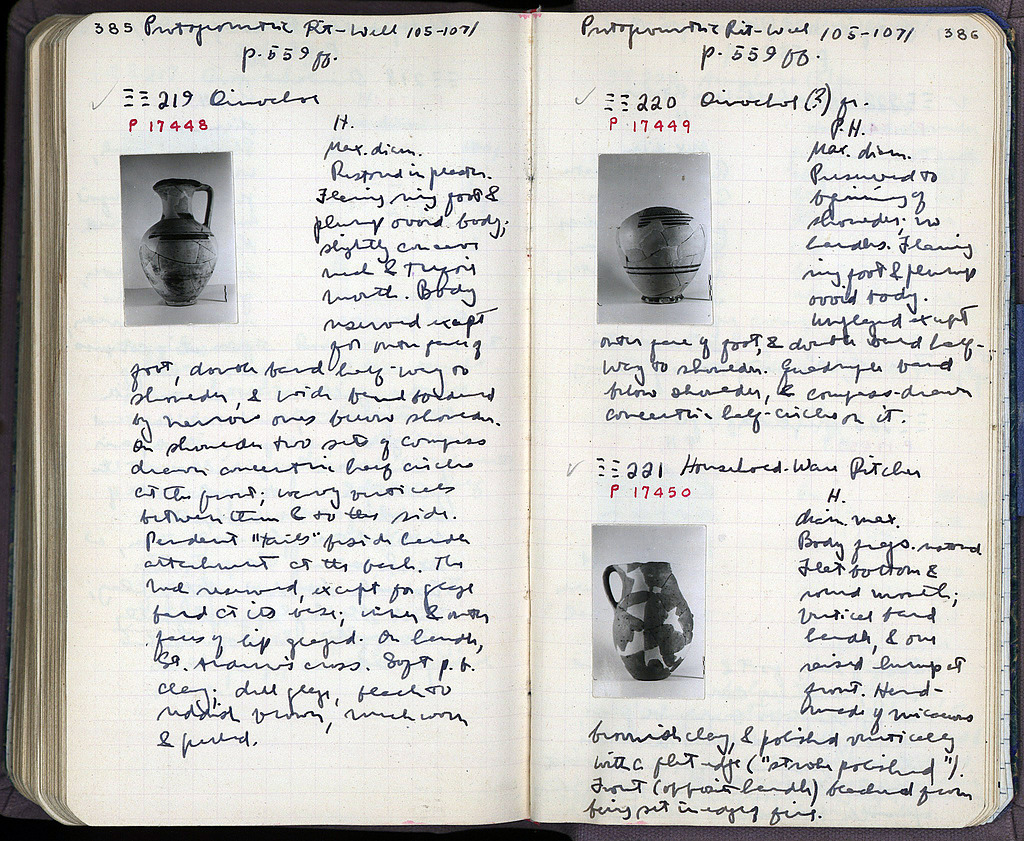 385 Protogeometric Pit-Well 105-107/
p. 559 ff.
ΞΞ 219 Oinochoe
P 17448
H.
Max. diam.
Restored in plaster.
Flaring ring foot &
plump ovoid body;
slightly concave
neck & trefoil
mouth. Body
reserved except
for outer face of
foot, double band half-way to
shoulder, & wide band bordered
by narrow ones below shoulder.
On shoulder two sets of compass
drawn concentric half circles
at the front; wavy verticals
between them & to the side.
Pendent "tails" beside handle
attachment at the back. The
neck reserved, except for glaze
band at its base; inner & outer
faces of lip glazed. On handle,
St. Andrew's cross. Soft p. b.
clay; dull glaze, black to
reddish brown, much worn
& peeled.
Protogeometric Pit-Well 105-107/ 386
p. 559 ff.
ΞΞ 220 Oinochoe (?) fr.
P 17449
P.H.
Max. diam.
Preserved to
beginning of
shoulder; no
handles. Flaring
ring foot & plump
ovoid body.
Unglazed except
outer face of foot, & double band half-
way to shoulder. Quadruple band
below shoulder, & compass-drawn
concentric half-circles on it.
ΞΞ 221 Household Ware Pitcher
P 17450
H.
diam. max.
Body frags. restored
Flat bottom &
round mouth;
vertical band
handle, & one
raised lump at
front. Hand-
made of micaceous
brownish clay, & polished vertically
with a flat edge ("stroke polished").
Front (opposite handle) blackened from
being set in edge of fire.